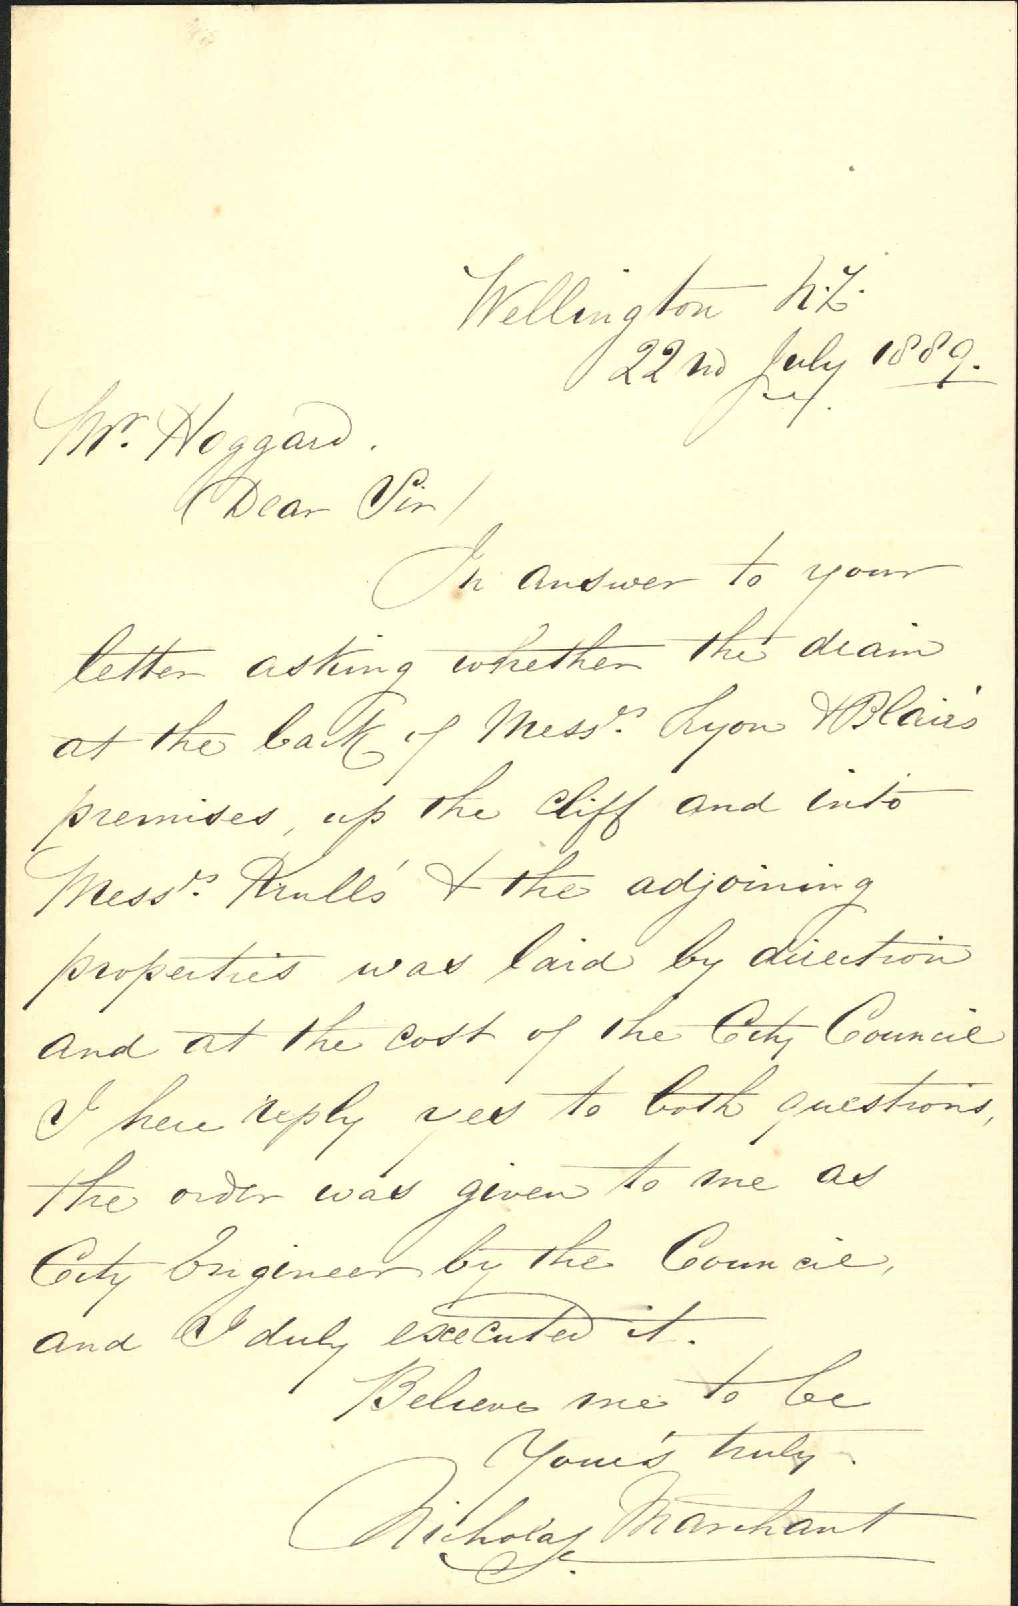 Wellington N.Z.
22nd July 1889.
Mr. Hoggard.
Dear Sir/
In answer to your
letter asking whether the drain
at the back of Messrs. Lyon & Blair's
premises, up the cliff and into
Messrs. Krull's & the adjoining
properties was laid by direction
and at the cost of the City Council
I here reply yes to both questions,
the order was given to me as
City Engineer by the Council,
and I duly executed it.
Believe me to be
Your's truly.
Nicholas Marchant